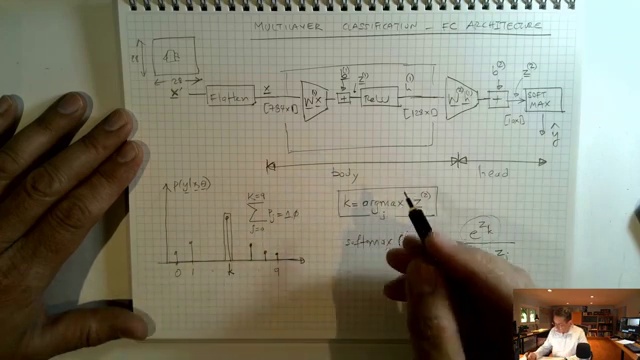 MULTILAYER CLASSIFICATION – FC ARCHITECTURE
28
28
X
Flatten
x
[784x1]
W⁽¹⁾x
b⁽¹⁾
+
z⁽¹⁾
ReLU
h⁽¹⁾
[128x1]
W⁽²⁾h⁽¹⁾
b⁽²⁾
+
z⁽²⁾
[10x1]
SOFT
MAX
ŷ
body
head
p(y|x,θ)
K=9
Σ Pj = 1.0
j=0
0 1 k 9
K = argmax z⁽²⁾
j
softmax
e^zk